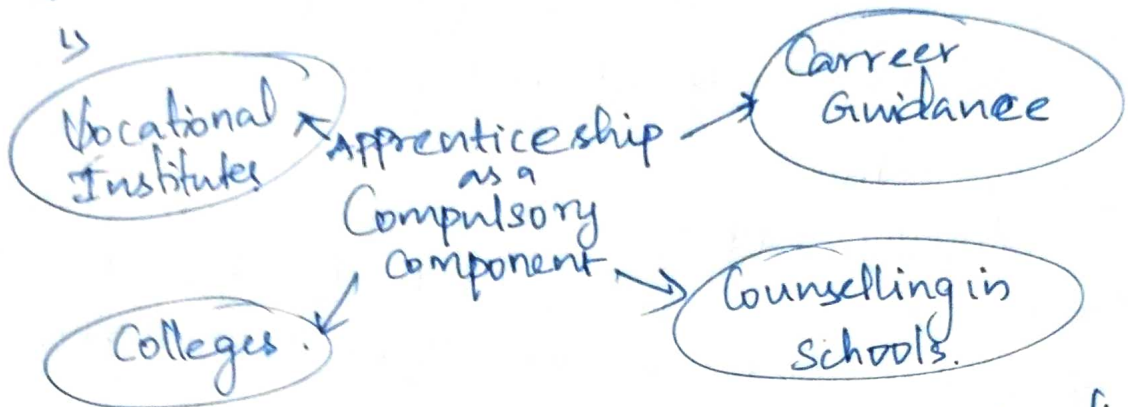 Vocational
Institutes
Apprenticeship
as a
Compulsory
component
Carreer
Guidance
Colleges.
Counselling in
schools.